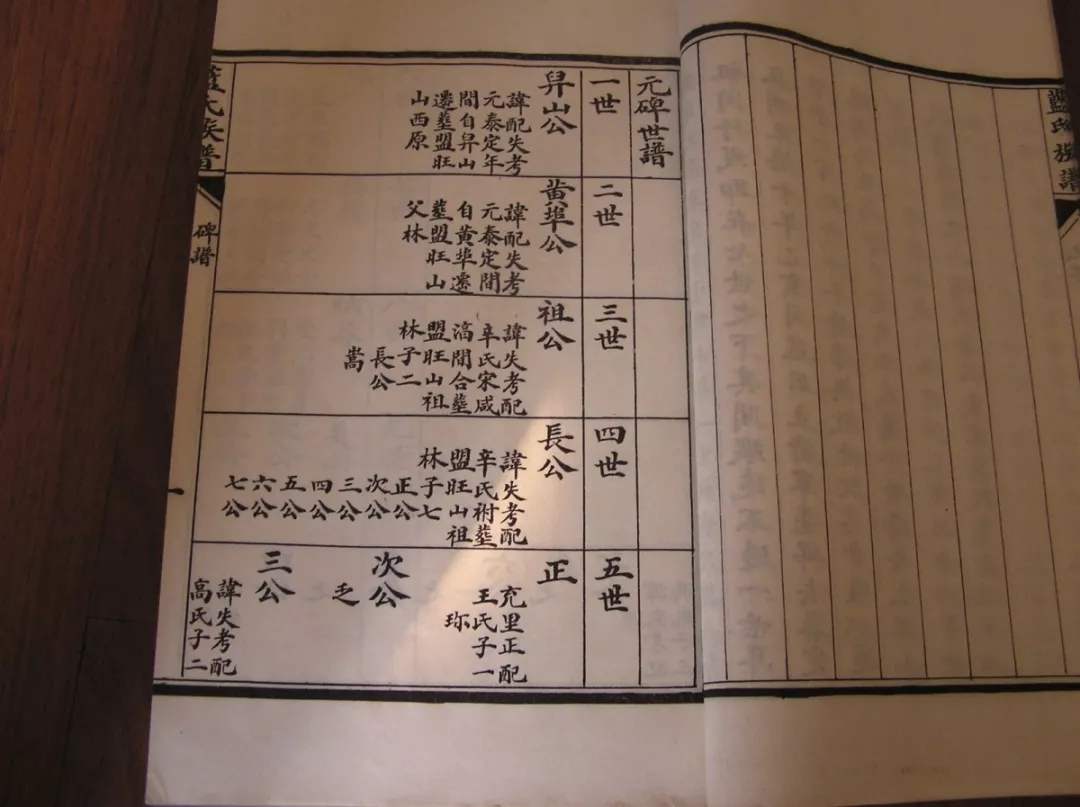 藍氏族譜
元碑世譜
一世
昇山公
諱配失考
元泰定年
間自昇山
遷葬盟旺
山西原
二世
黄埠公
諱配失考
元泰定間
自黄埠遷
葬盟旺山
父林
三世
祖公
諱失考配
辛氏宋咸
湻間合葬
盟旺山祖
林子二
長公
嵩
四世
長公
諱失考配
辛氏祔葬
盟旺山祖
林子七
正公
次公
三公
四公
五公
六公
七公
五世
正
充里正配
王氏子一
珎
次公
乏
三公
諱失考配
高氏子二
藍氏族譜
碑譜
一